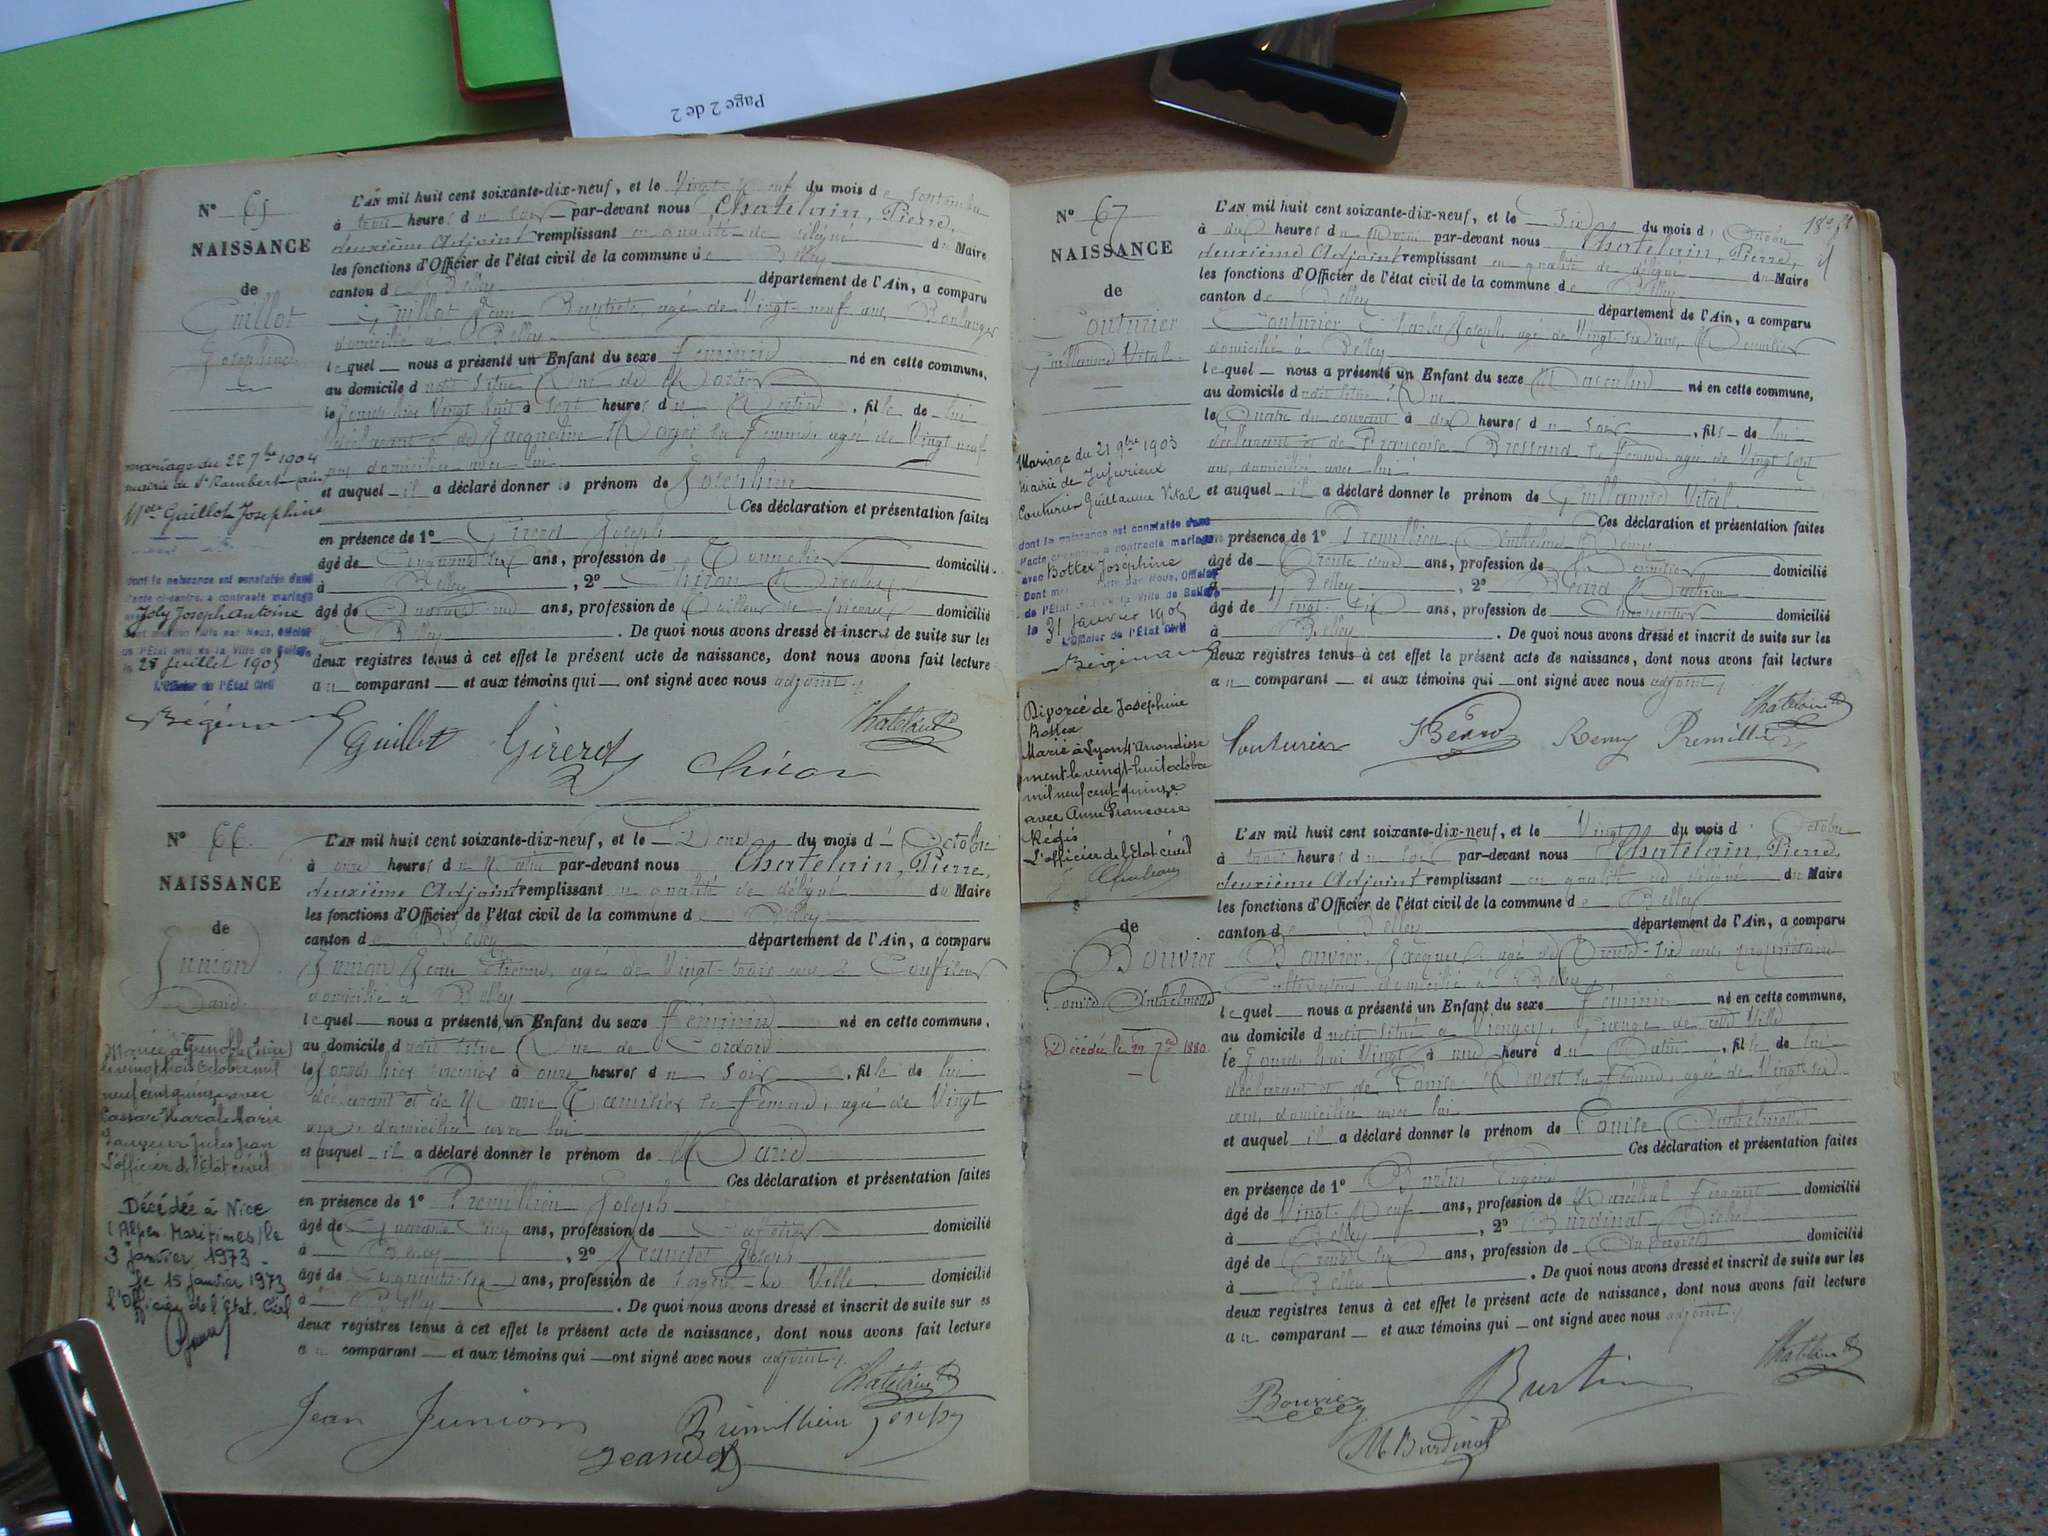 Page 2 de 2
N° 65
NAISSANCE
de
Guillot
Joséphine
mariage du 22 7bre 1904
mairie de St Rambert
Guillot Josephine
dont la naissance est constatée dans
l'acte ci-contre, a contracté mariage
avec Joly Joseph Antoine
dont mention faite par Nous, Officier
de l'État civil de la Ville de Belley
le 28 Juillet 1905
L'Officier de l'État Civil
L'AN mil huit cent soixante-dix-neuf, et le Vingt-neuf du mois de Septembre
à trois heures du soir par-devant nous Chatelain, Pierre,
deuxième Adjoint remplissant en qualité de délégué du Maire
les fonctions d'Officier de l'état civil de la commune de Belley
canton de Belley département de l'Ain, a comparu
Guillot Jean Baptiste, agé de Vingt-neuf ans, Boulanger
domicilié à Belley
lequel nous a présenté un Enfant du sexe féminin né en cette commune,
au domicile dudit situé Rue de
le jourd'hier Vingt huit à sept heures du Matin, fille de lui
déclarant et de Jacqueline sa femme, agée de Vingt neuf
ans, domiciliée avec lui
et auquel il a déclaré donner le prénom de Joséphine
Ces déclaration et présentation faites
en présence de 1° Girerd Joseph
âgé de ans, profession de Tonnelier domicilié
à Belley, 2° Chiron
âgé de ans, profession de Tailleur de pierres domicilié
à Belley. De quoi nous avons dressé et inscrit de suite sur les
deux registres tenus à cet effet le présent acte de naissance, dont nous avons fait lecture
au comparant et aux témoins qui ont signé avec nous adjoint
Guillot Girerd Chiron Chatelain
N° 66
NAISSANCE
de
Junion
Marie
Mariée à Grenoble (Isère)
le vingt trois Octobre mil
neuf cent quinze avec
Jules Jean
L'officier de l'Etat civil
Décédée à Nice
(Alpes Maritimes) le
3 Janvier 1973
le 15 janvier 1973
l'Officier de l'Etat Civil
L'AN mil huit cent soixante-dix-neuf, et le Deux du mois d'Octobre
à onze heures du Matin par-devant nous Chatelain, Pierre,
deuxième Adjoint remplissant en qualité de délégué du Maire
les fonctions d'Officier de l'état civil de la commune de Belley
canton de Belley département de l'Ain, a comparu
Junion Jean Etienne, agé de Vingt-trois ans, Confiseur
domicilié à Belley
lequel nous a présenté un Enfant du sexe Féminin né en cette commune,
au domicile dudit situé Rue de Cordon
le jourd'hier premier à onze heures du soir, fille de lui
déclarant et de Marie sa femme, agée de Vingt
ans domiciliée avec lui
et auquel il a déclaré donner le prénom de Marie
Ces déclaration et présentation faites
en présence de 1° Premillieu Joseph
âgé de Quarante Cinq ans, profession de domicilié
à Belley, 2° Jeandet Joseph
âgé de Cinquante-six ans, profession de Sergent de Ville domicilié
à Belley. De quoi nous avons dressé et inscrit de suite sur les
deux registres tenus à cet effet le présent acte de naissance, dont nous avons fait lecture
au comparant et aux témoins qui ont signé avec nous adjoint
Jean Junion Prémillieu Joseph Chatelain
Jeandet
N° 67
NAISSANCE
de
Couturier
Guillaume Vital
Mariage du 21 9bre 1903
Mairie de Jujurieux
Couturier Guillaume Vital
dont la naissance est constatée dans
l'acte ci-contre, a contracté mariage
avec Bottex Josephine
Dont mention faite par Nous, Officier
de l'État civil de la Ville de Belley
le 31 Janvier 1905
L'Officier de l'État Civil
Divorcé de Joséphine
Bottex
Marié à Lyon 4e arrondisse
ment le vingt-huit octobre
mil neuf cent quinze
avec Anne Françoise
Régis
L'officier de l'Etat civil
L'AN mil huit cent soixante-dix-neuf, et le Six du mois d'Octobre
à dix heures du Matin par-devant nous Chatelain, Pierre,
deuxième Adjoint remplissant en qualité de délégué du Maire
les fonctions d'Officier de l'état civil de la commune de Belley
canton de Belley département de l'Ain, a comparu
Couturier Charles Joseph, agé de Vingt-six ans, Menuisier
domicilié à Belley
lequel nous a présenté un Enfant du sexe Masculin né en cette commune,
au domicile dudit situé Rue
le Quatre du courant à dix heures du soir, fils de lui
déclarant et de Françoise Bressand sa femme, agée de Vingt sept
ans, domiciliée avec lui
et auquel il a déclaré donner le prénom de Guillaume Vital
Ces déclaration et présentation faites
en présence de 1° Premillieu Anthelme Remy
âgé de Trente deux ans, profession de Menuisier domicilié
à Belley, 2° Béard
âgé de Vingt-six ans, profession de Charpentier domicilié
à Belley. De quoi nous avons dressé et inscrit de suite sur les
deux registres tenus à cet effet le présent acte de naissance, dont nous avons fait lecture
au comparant et aux témoins qui ont signé avec nous adjoint
Couturier Béard Remy Premillieu Chatelain
de
Bouvier
Louise Anthelmette
Décédée le 22 7bre 1880
L'AN mil huit cent soixante-dix-neuf, et le Vingt du mois d'Octobre
à trois heures du soir par-devant nous Chatelain, Pierre,
deuxième Adjoint remplissant en qualité de délégué du Maire
les fonctions d'Officier de l'état civil de la commune de Belley
canton de Belley département de l'Ain, a comparu
Bouvier, Jacques, agé de Trente-six ans, propriétaire
Cultivateur domicilié à Belley
lequel nous a présenté un Enfant du sexe Féminin né en cette commune,
au domicile dudit situé à de cette Ville
le jourd'hui Vingt à une heure du Matin, fille de lui
déclarant et de Louise sa femme, agée de Vingt six
ans, domiciliée avec lui
et auquel il a déclaré donner le prénom de Louise Anthelmette
Ces déclaration et présentation faites
en présence de 1° Burtin Eugène
âgé de Vingt-Neuf ans, profession de Maréchal Ferrant domicilié
à Belley, 2° Burdinat Michel
âgé de Trente six ans, profession de domicilié
à Belley. De quoi nous avons dressé et inscrit de suite sur les
deux registres tenus à cet effet le présent acte de naissance, dont nous avons fait lecture
au comparant et aux témoins qui ont signé avec nous adjoint
Bouvier Burtin Chatelain
M. Burdinat